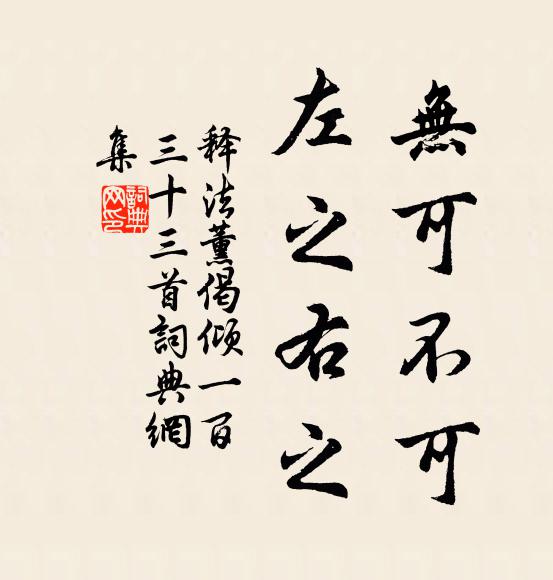 無可不可
左之右之
释法薰偈倾一百
三十三首詞典網
集
詞典網印